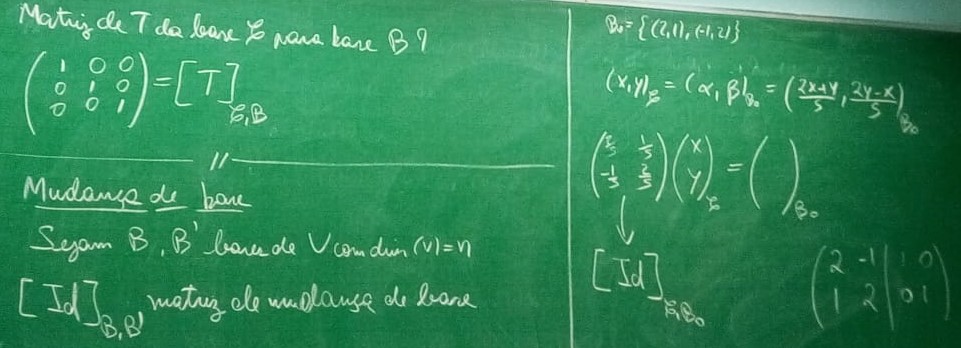 Matriz de T da base C para base B?
(1 0 0
0 1 0
0 0 1) = [T]_{C,B}
//
Mudança de base
Sejam B, B' bases de V com dim(V)=n
[Id]_{B,B'} matriz de mudança de base
B₀ = {(2,1), (-1,2)}
(x,y)_C = (α, β)_{B₀} = (2x+y/5, 2y-x/5)_{B₀}
(2/5 1/5
-1/5 2/5) (x
y)_C = ( )_{B₀}
↓
[Id]_{C,B₀}
(2 -1 | 1 0
1 2 | 0 1)